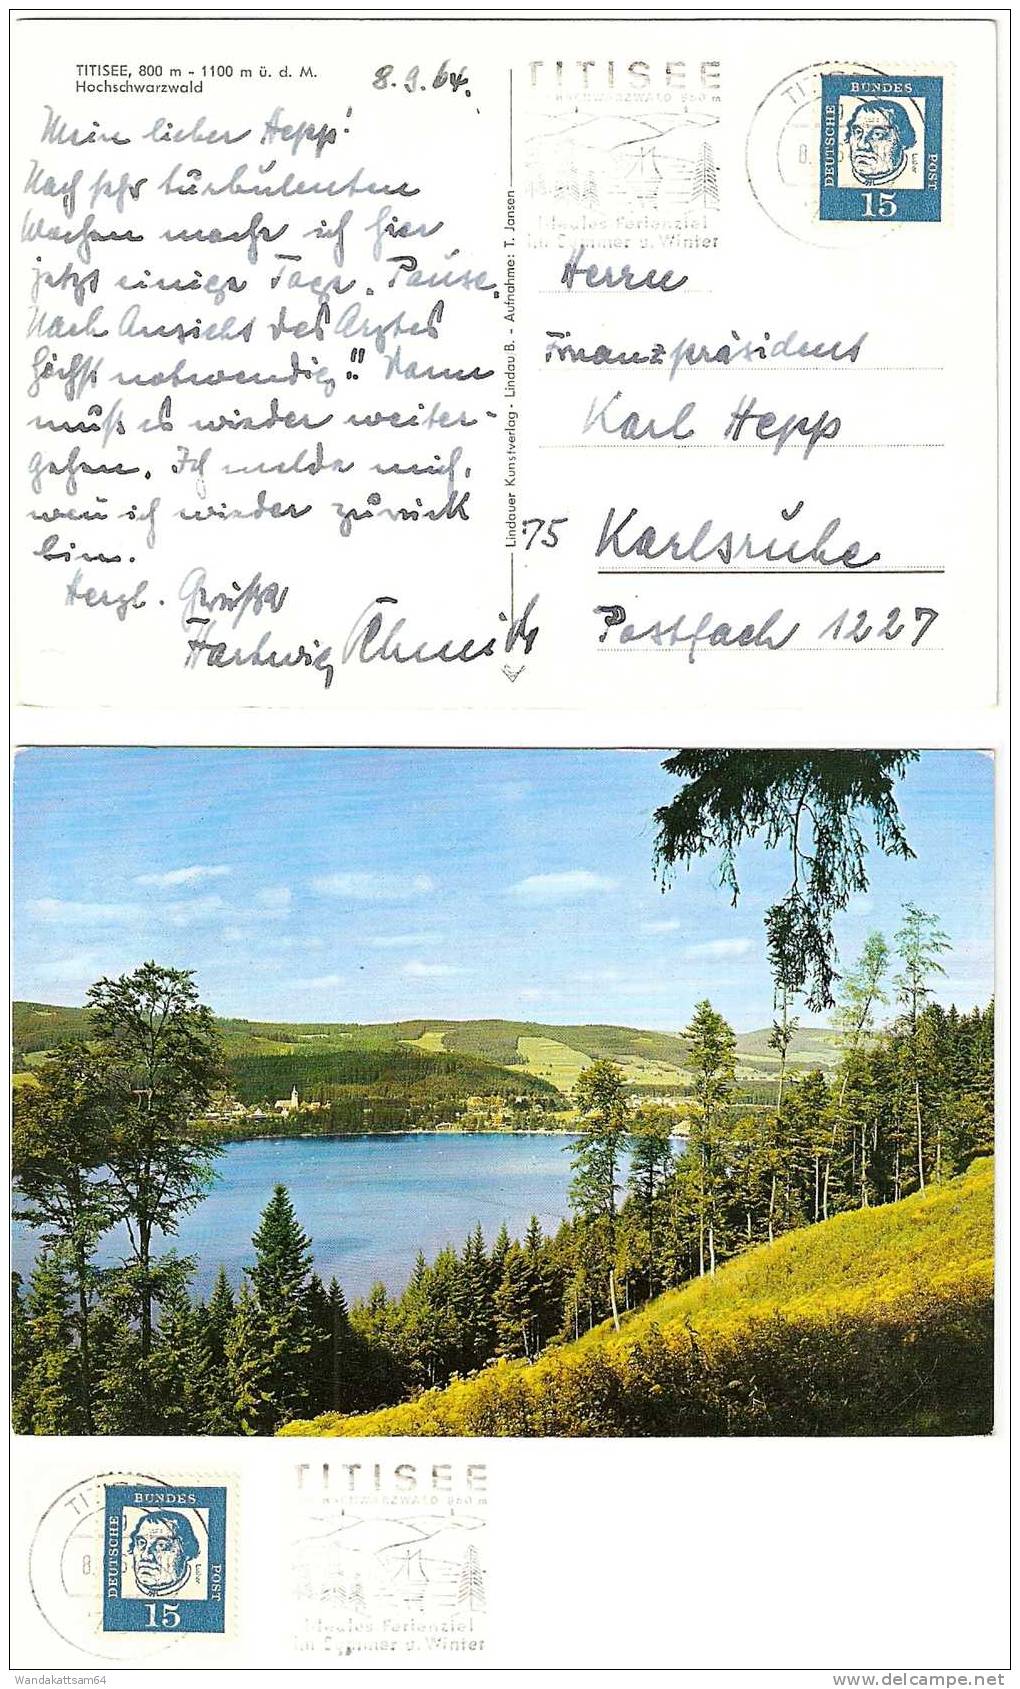 TITISEE, 800 m - 1100 m ü. d. M.
Hochschwarzwald
8.9.64.
Mein lieber Hepp!
Nach sehr turbulenten
Wochen mache ich hier
jetzt einige Tage "Pause".
Nach Ansicht des Arztes
höchst notwendig!! Dann
muß es wieder weiter-
gehen. Ich melde mich,
wenn ich wieder zurück
bin.
Herzl. Grüße
Hartwig Schmidt
Lindauer Kunstverlag - Lindau/B. - Aufnahme: T. Jansen
TITISEE
HOCHSCHWARZWALD 860 m
Ideales Ferienziel
im Sommer u. Winter
DEUTSCHE
BUNDES
POST
15
Herrn
Finanzpräsident
Karl Hepp
75 Karlsruhe
Postfach 1227
DEUTSCHE
BUNDES
POST
15
TITISEE
HOCHSCHWARZWALD 860 m
Ideales Ferienziel
im Sommer u. Winter
Wandakattsam64
www.delcampe.net